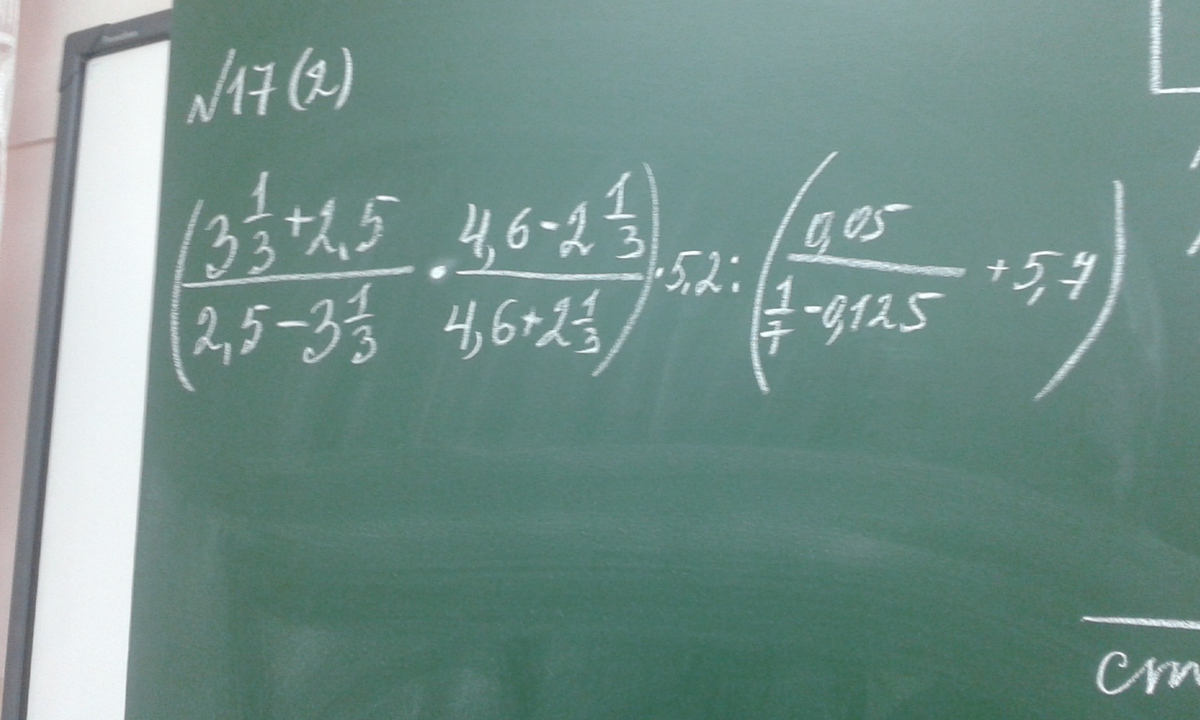 №17(2)
(3 1/3 + 2,5 / 2,5 - 3 1/3 · 4,6 - 2 1/3 / 4,6 + 2 1/3) · 5,2 : (0,05 / 1/7 - 0,125 + 5,7)